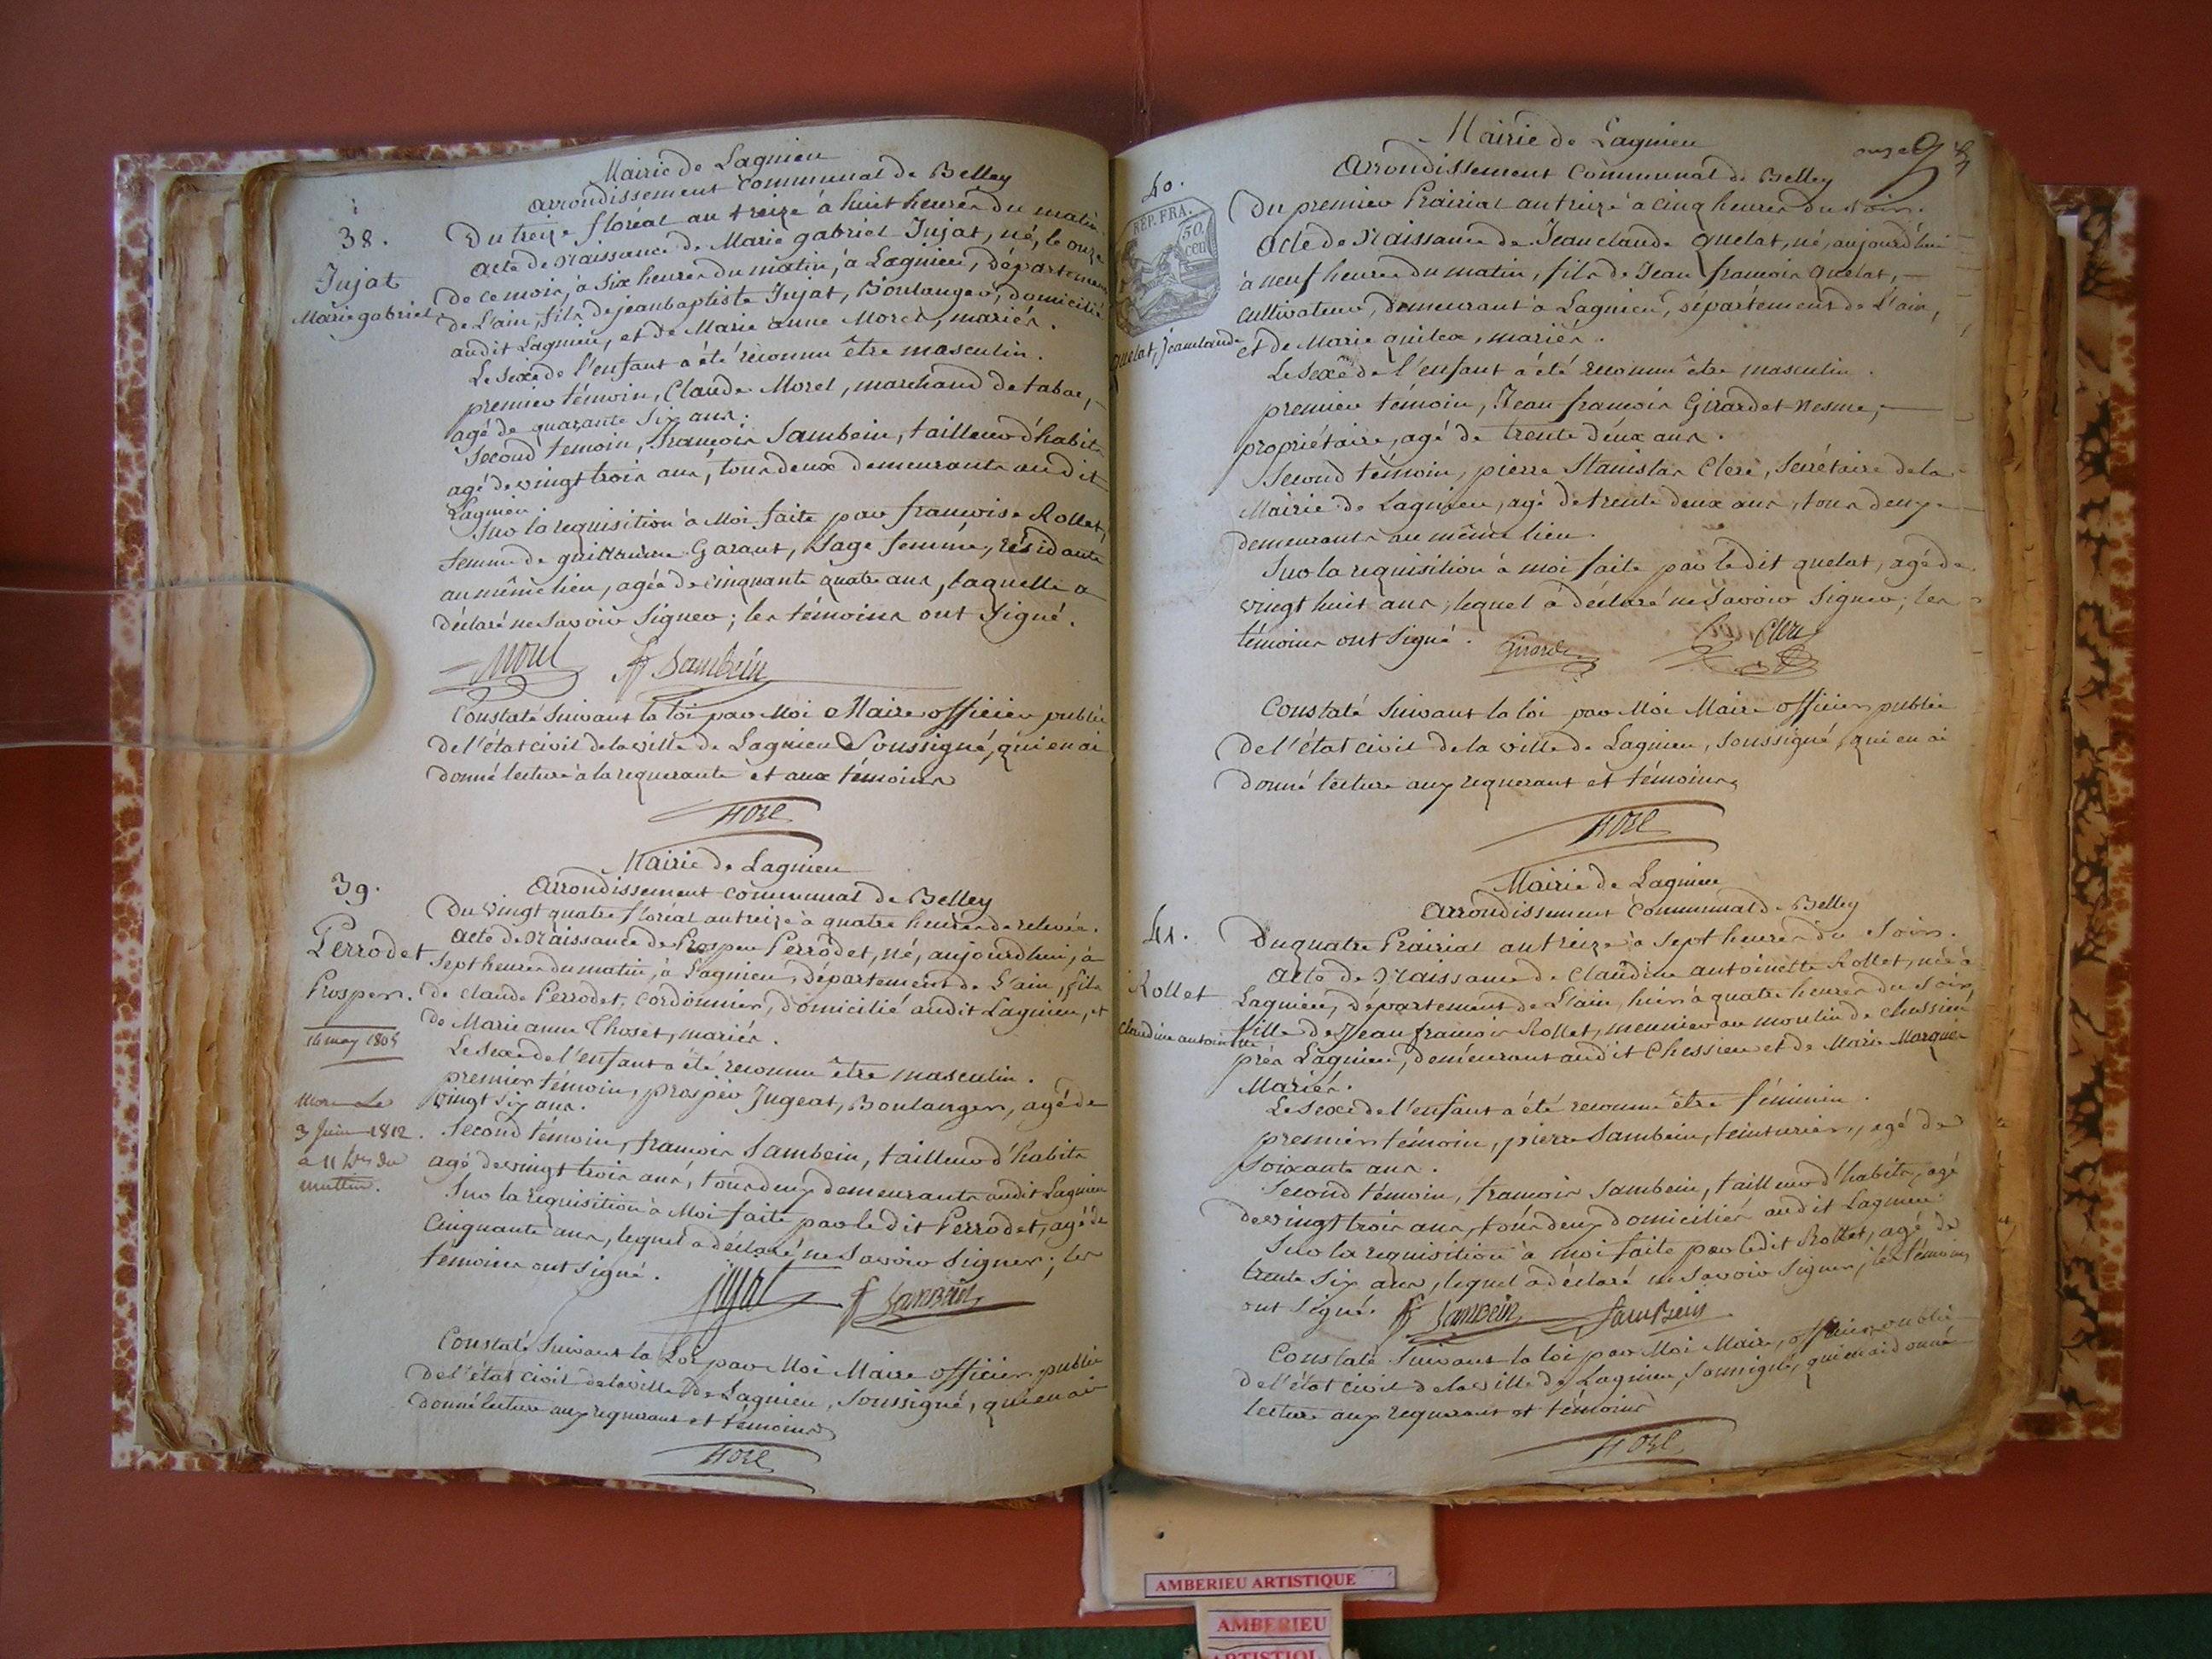 Mairie de Lagnieu
arrondissement communal de Belley
38.
Jujat
Marie gabriel
Du treize floréal an treize à huit heures du matin.
acte de Naissance de Marie gabriel Jujat, né, le onze
de ce mois, à six heures du matin, à Lagnieu, Département
de L'ain, fils de jean baptiste Jujat, Boulanger, domicilié
audit Lagnieu, et de Marie anne Morel, mariés.
Le sexe de l'enfant a été reconnu être masculin.
premier témoin, Claude Morel, marchand de tabac,
agé de quarante six ans.
Second témoin, françois Sambein, tailleur d'habits
agé de vingt trois ans, tous deux demeurants audit
Lagnieu
Sur la requisition à Moi faite par françoise Rollet,
femme de guillaume Garaut, sage femme, résidante
au même lieu, agée de cinquante quatre ans, laquelle a
déclaré ne savoir signer; les témoins ont signé.
Morel f Sambein
Constaté suivant la loi par Moi Maire officier public
de l'état civil de la ville de Lagnieu Soussigné, qui en ai
donné lecture à la requerante et aux témoins
Mairie de Lagnieu
arrondissement communal de Belley
39.
Perrodet
Prosper.
14 may 1805
mort Le
3 Juin 1812.
à 11 hres du
mattin.
Du vingt quatre floréal an treize à quatre heures de relevée.
acte de Naissance de Prosper Perrodet, né, aujourdhui, à
sept heures du matin, à Lagnieu, Département de L'ain, fils
de claude Perrodet, Cordonnier, domicilié audit Lagnieu, et
de Marie anne Thoset, mariés.
Le sexe de l'enfant a été reconnu être masculin.
premier témoin, prosper Jugeat, Boulanger, agé de
vingt six ans.
Second témoin, françois Sambein, tailleur d'habits
agé de vingt trois ans, tous deux demeurants audit Lagnieu
Sur la requisition à Moi faite par le dit Perrodet, agé de
Cinquante ans, lequel a déclaré ne savoir signer; les
témoins ont signé.
jujat f SamBein
Constaté suivant la Loi par Moi Maire officier public
de l'état civil de la ville de Lagnieu, soussigné, qui en ai
donné lecture aux requerant et témoins
Mairie de Lagnieu
onze
Arrondissement Communal de Belley
40.
REP. FRA.
50
cent
quelat, Jean claude
Du premier Prairial an treize à cinq heures du soir.
Acte de Naissance de Jean claude quelat, né, aujourd'hui
à neuf heures du matin, fils de Jean françois quelat,
cultivateur, demeurant à Lagnieu, département de L'ain,
et de Marie quilea, mariés.
Le sexe de l'enfant a été reconnu être masculin.
premier témoin, Jean françois Girardet-Nesme,
propriétaire, agé de trente deux ans.
Second témoin, pierre Stanislas Clerc, Secrétaire de la
Mairie de Lagnieu, agé de trente deux ans, tous deux
demeurants au même lieu.
Sur la requisition à moi faite par le dit quelat, agé de
vingt huit ans, lequel a déclaré ne savoir signer; les
témoins ont signé.
Clerc
Constaté suivant la loi par Moi Maire officier public
de l'état civil de la ville de Lagnieu, soussigné, qui en ai
donné lecture aux requerant et témoins
Mairie de Lagnieu
arrondissement Communal de Belley
41.
Rollet
claudine antoinette
Du quatre Prairial an treize à sept heures du soir.
acte de Naissance de Claudine antoinette Rollet, née à
Lagnieu, département de L'ain, hier à quatre heures du soir,
fille de Jean françois Rollet, meunier au moulin de chessieu
près Lagnieu, demeurant audit Chessieu et de Marie
Mariés.
Le sexe de l'enfant a été reconnu être féminin.
premier témoin, pierre Sambein, teinturier, agé de
soixante ans.
Second témoin, francois Sambein, tailleur d'habits, agé
de vingt trois ans, tous deux domiciliés audit Lagnieu.
Sur la requisition à moi faite par le dit Rollet, agé de
trente six ans, lequel a déclaré ne savoir signer; les témoins
ont signé. f SamBein SamBein
Constaté suivant la loi par Moi Maire, officier public
de l'état civil de la ville de Lagnieu, soussigné, qui en ai donné
lecture aux requerant et témoins
AMBERIEU ARTISTIQUE
AMBERIEU